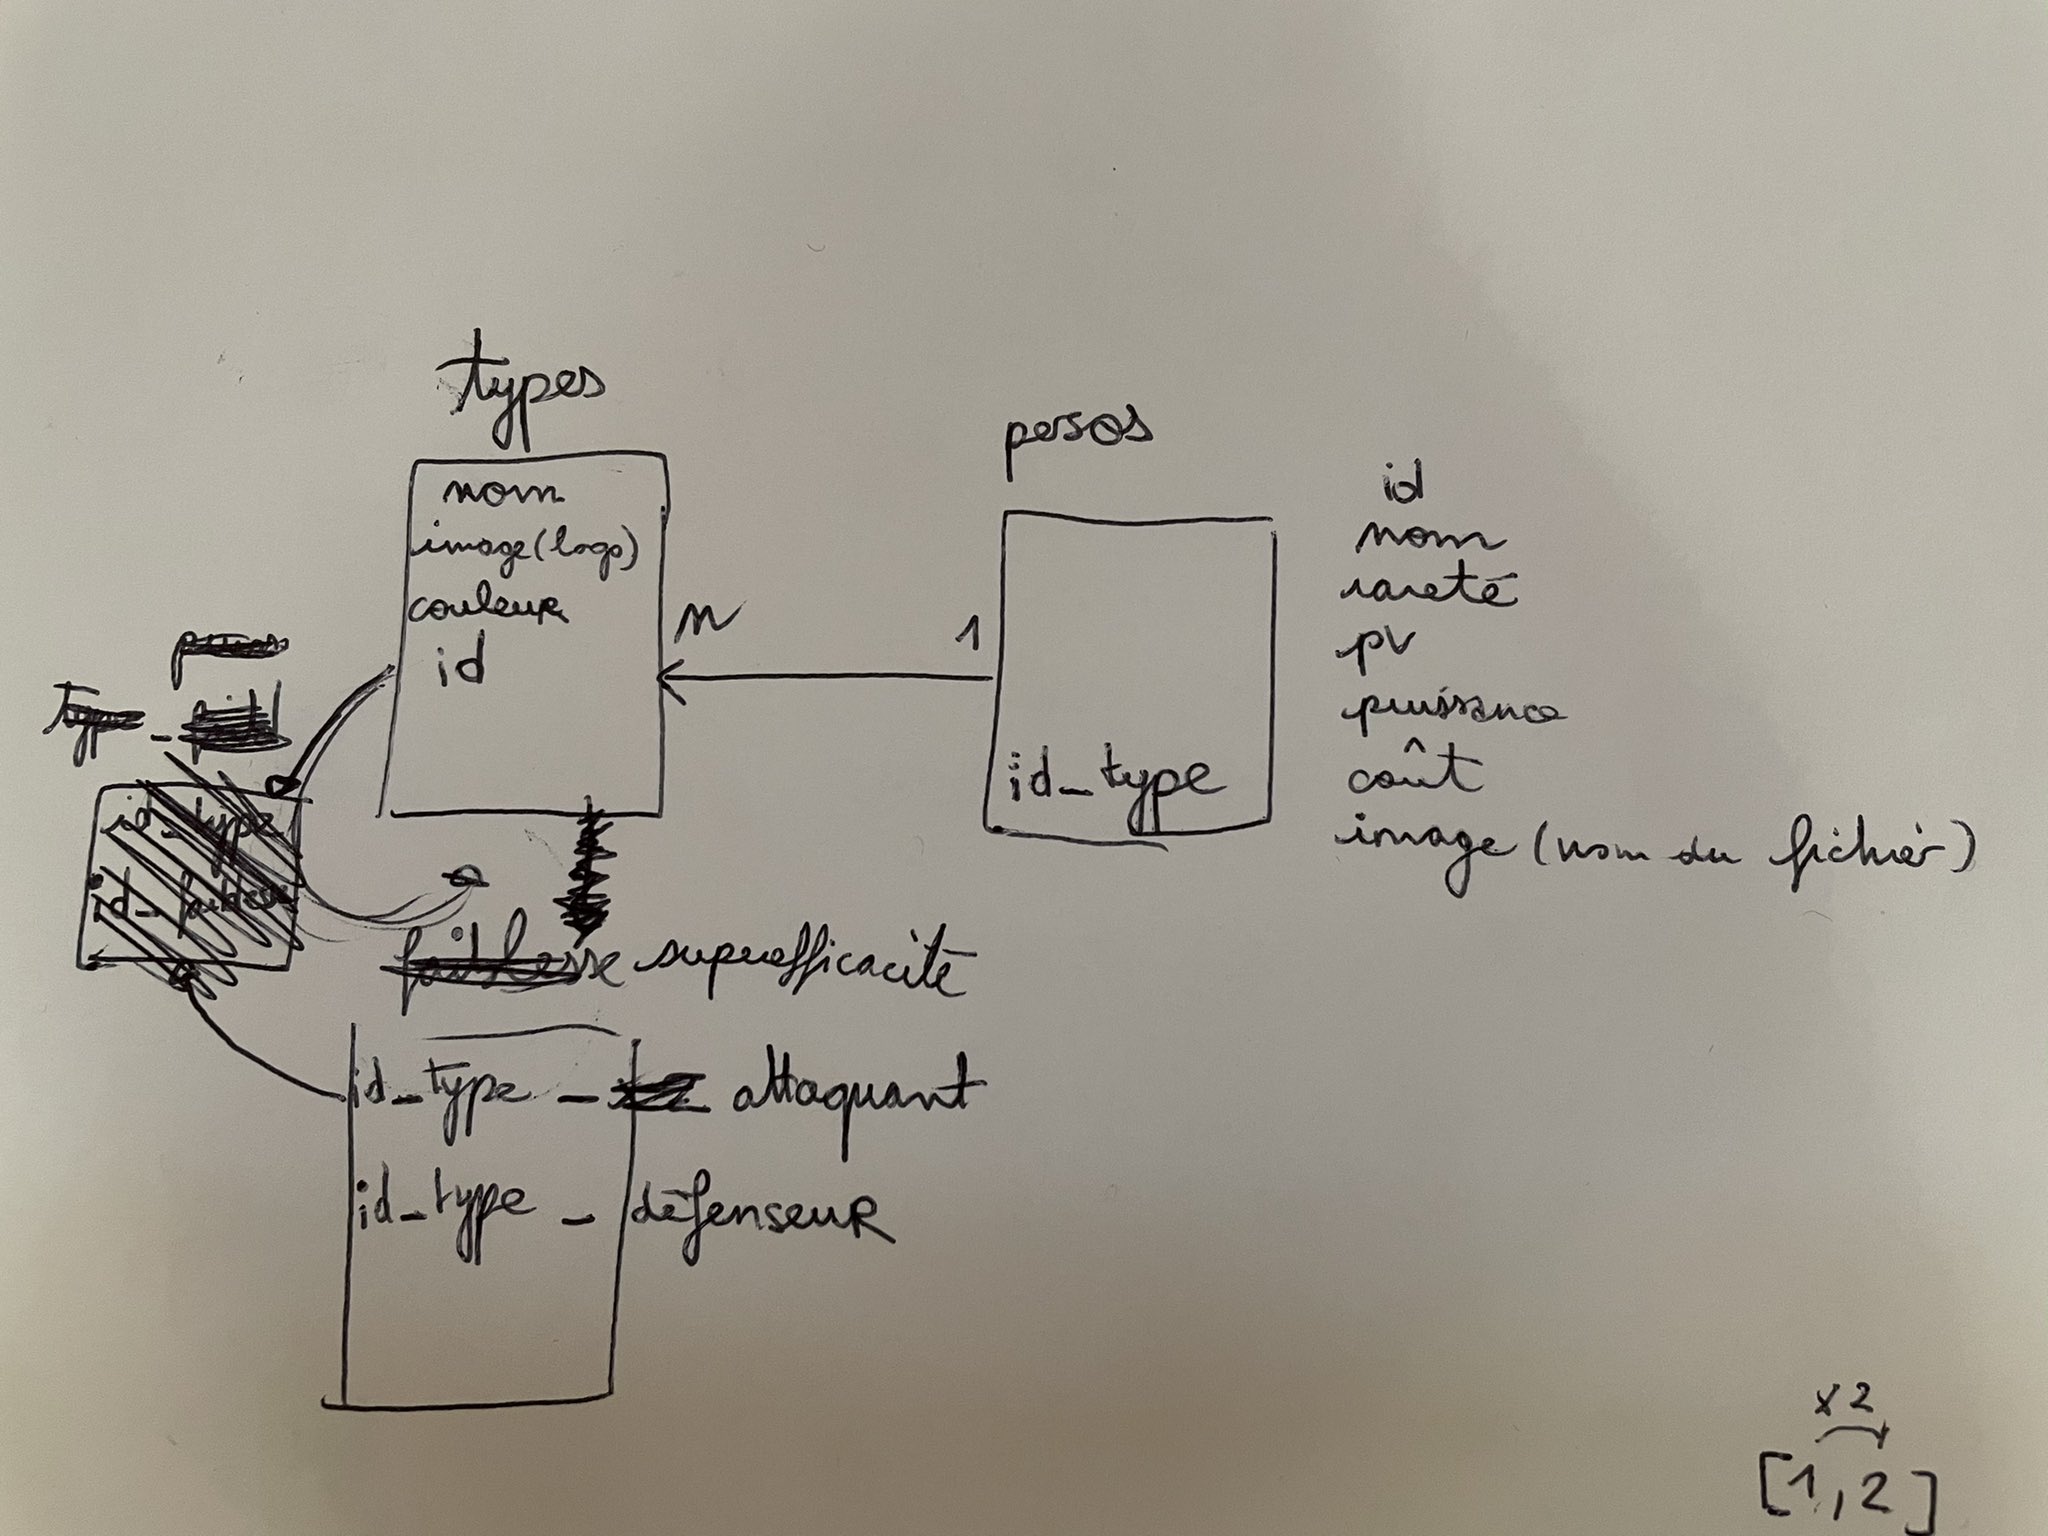 types
nom
image (logo)
couleur
id
n
1
persos
id_type
id
nom
rareté
pv
puissance
coût
image (nom du fichier)
type_
id_type
faiblesse superefficacité
id_type_ attaquant
id_type_défenseur
x2
[1,2]